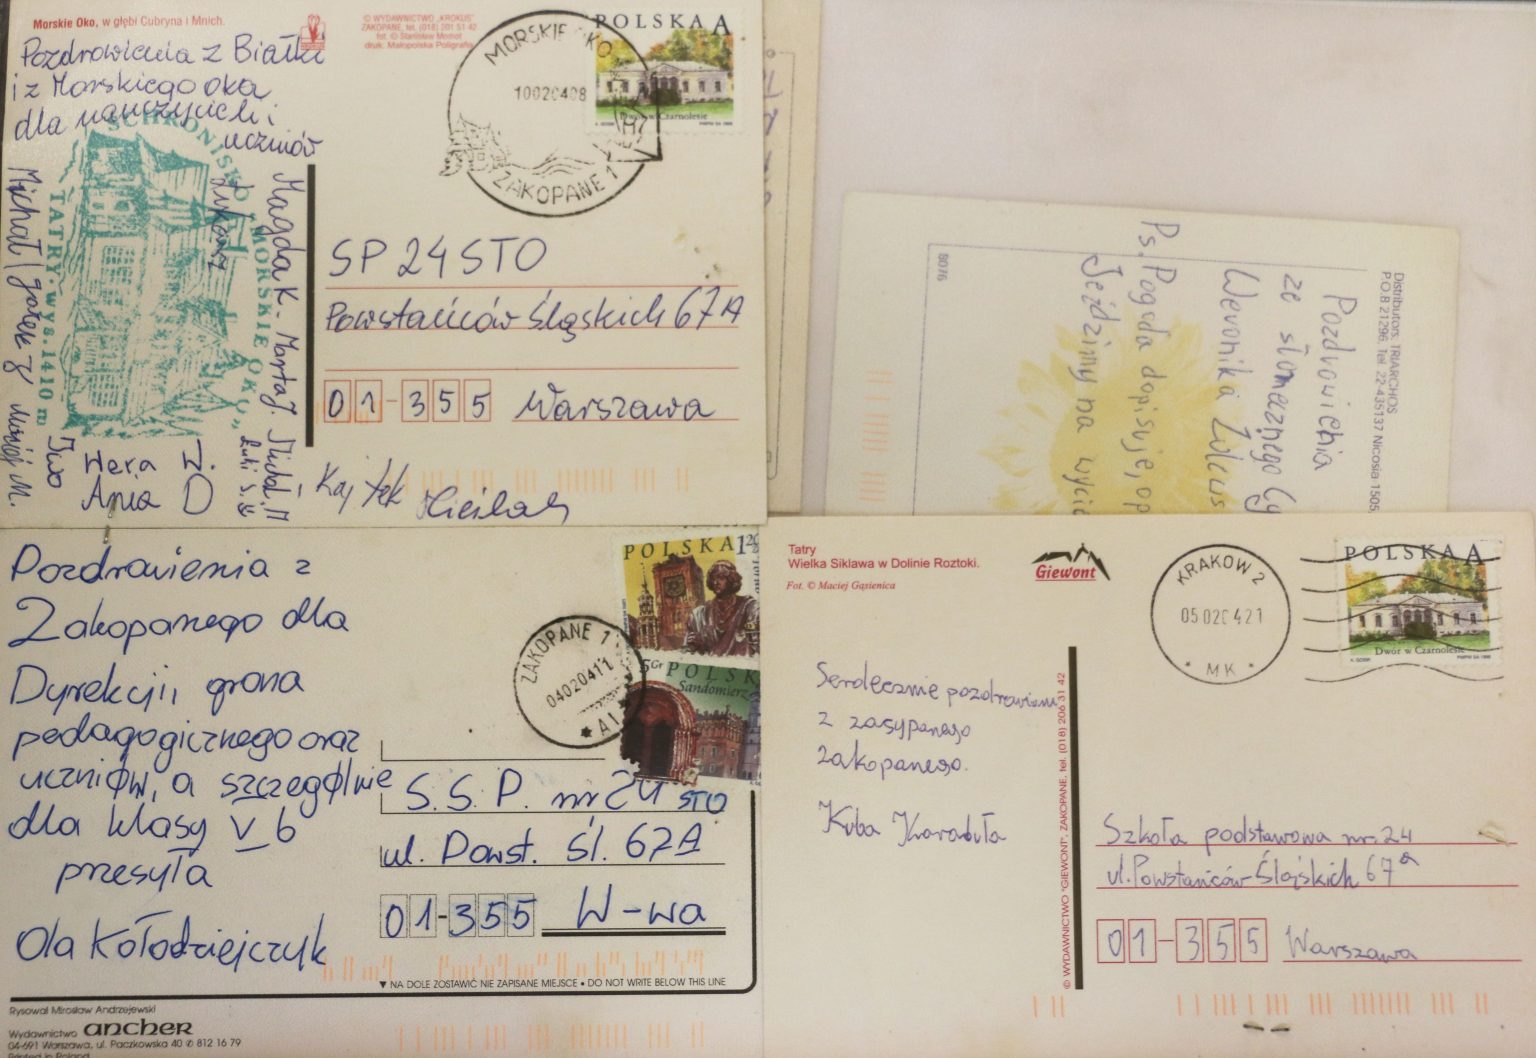 Morskie Oko, w głębi Cubryna i Mnich.
© WYDAWNICTWO „KROKUS"
ZAKOPANE, tel. (018) 201 51 42
fot. © Stanisław Momot
druk: Małopolska Poligrafia
Pozdrowienia z Białki
i z Morskiego oka
dla nauczycieli i
uczniów
SCHRONISKO „MORSKIE OKO"
TATRY·wys.1410 m
Michał
Łukasz
Magda K - Marta J.
Iwo
Wera W.
Ania D
Kajtek
POLSKA A
Dwór w Czarnolesie
MORSKIE OKO
10020408
ZAKOPANE 1
SP 24 STO
Powstańców Śląskich 67A
01-355 Warszawa
Distributors: TRIARCHOS
P.O.B 21296. Tel. 22-435137 Nicosia 1505,
8076
Pozdrowienia
ze słonecznego Cy
Weronika
Ps. Pogoda dopisuje, op
Jeździmy na wycie
Pozdrowienia z
Zakopanego dla
Dyrekcji, grona
pedagogicznego oraz
uczniów, a szczególnie
dla klasy V b
przesyła
Ola Kołodziejczyk
POLSKA 1 20
5 Gr POLSK
Sandomierz
ZAKOPANE 1
04020411
* A1 *
S. S. P. nr 24 STO
ul. Powst. Śl. 67A
01-355 W-wa
▼ NA DOLE ZOSTAWIĆ NIE ZAPISANE MIEJSCE • DO NOT WRITE BELOW THIS LINE
Rysował Mirosław Andrzejewski
Wydawnictwo ancher
04-691 Warszawa, ul. Paczkowska 40 ✆ 812 16 79
Printed in Poland
Tatry
Wielka Siklawa w Dolinie Roztoki.
Fot. © Maciej Gąsienica
Giewont
KRAKOW 2
05020421
* MK *
POLSKA A
Dwór w Czarnolesie
Serdecznie pozdrowienia
z zasypanego
zakopanego.
Kuba Karabuła
© WYDAWNICTWO "GIEWONT", ZAKOPANE, tel. (018) 206 31 42
Szkoła podstawowa nr. 24
ul. Powstańców Śląskich 67a
01-355 Warszawa